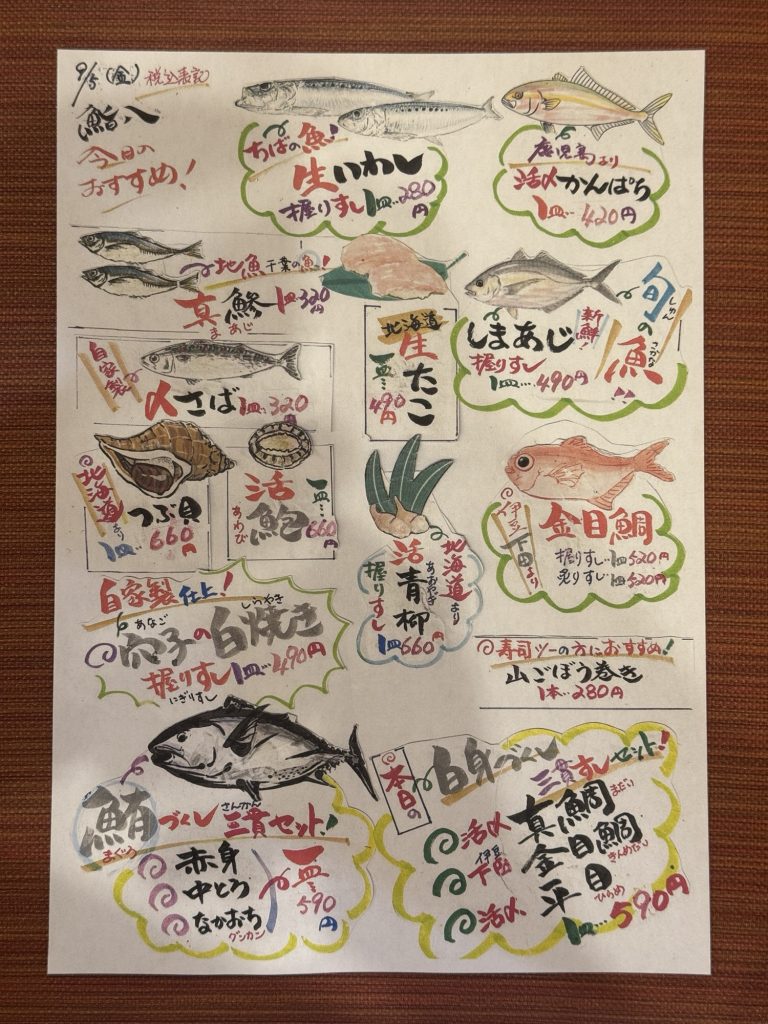 9/5(金)税込表記
鮨八
今日の
おすすめ!
ちばの魚!
生いわし
握りすし1皿…280円
鹿児島より
活〆かんぱち
1皿…420円
地魚千葉の魚!
真鯵1皿…320円
まあじ
自家製
〆さば1皿…320
北海道
生たこ
一皿…490円
旬の魚!!
しゅん
さかな
しまあじ
新鮮!
握りすし
1皿…490円
北海道より
つぶ貝
1皿…660円
活鮑
あわび
一皿…660円
北海道より
活青柳
あおやぎ
握りすし
1皿660円
伊豆下田より
金目鯛
握りすし…1皿520円
炙りすし…1皿520円
自家製仕上!
あなご
しらやき
穴子の白焼き
握りすし1皿…490円
にぎりずし
寿司ツーの方におすすめ!
山ごぼう巻き
1本…280円
鮪づくし三貫セット!
まぐろ
さんかん
赤身
中とろ
なかおち
グンカン
一皿…590円
本日の
白身づくし
三貫すしセット!
活〆 真鯛
まだい
伊豆
下田 金目鯛
きんめだい
活〆 平目
ひらめ
1皿…590円